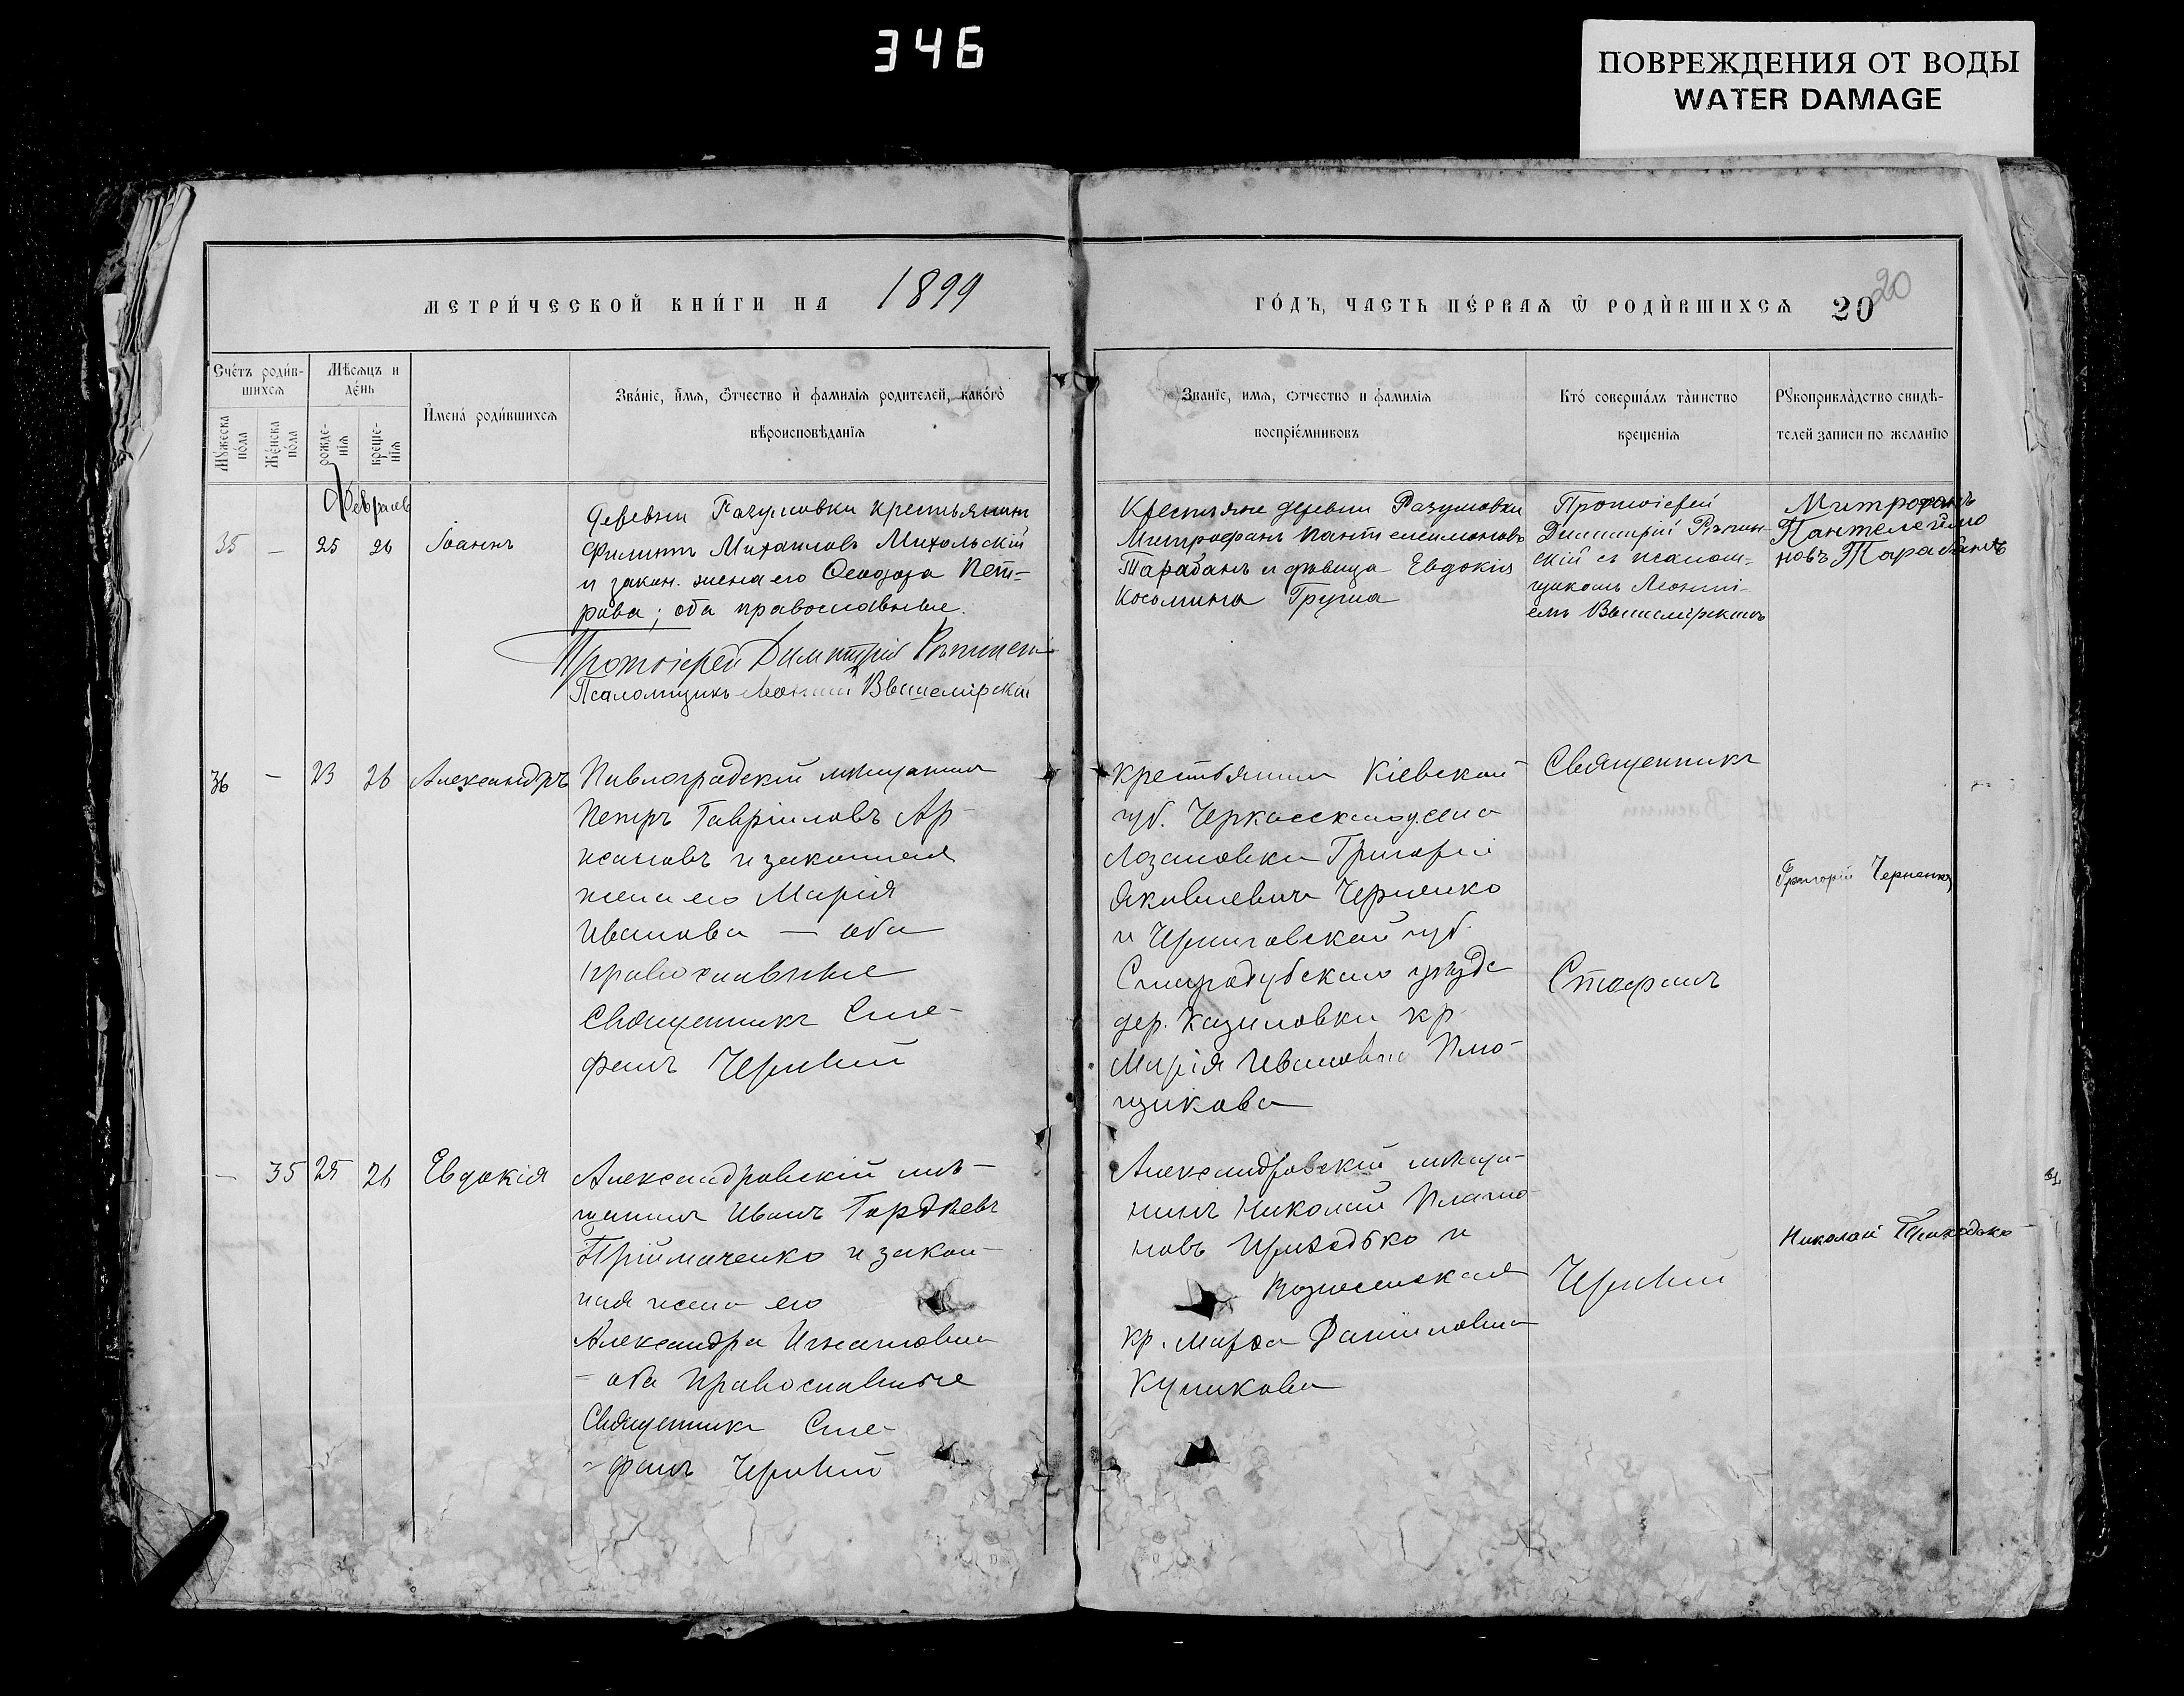 346
ПОВРЕЖДЕНИЯ ОТ ВОДЫ
WATER DAMAGE
МЕТРИ́ЧЕСКОЙ КНИ́ГИ НА 1899
ГО́ДЪ, ЧАСТЬ ПЕ́РВАѦ Ѿ РОДИ́ВШИХСѦ 20
20
Сче́тъ роди́в-
шихсѧ
Мꙋжеска по́ла
Же́нска по́ла
Мѣсѧцъ и
де́нь
рожде-
нїѧ
креще-
нїѧ
И҆мена̀ роди́вшихсѧ
Зва́нїе, и҆́мѧ, ѻ҆́тчество и҆ фамилїѧ родителей, како́гѡ
вѣроисповѣданїѧ
Званїе, имѧ, ѻтчество и фамилїѧ
воспрїе́мниковъ
Кто̀ соверша́лъ та̀инство
крещенїѧ
Рꙋкоприкла́дство свидѣ-
телей записи по желанїю
Февраль
35
—
25
26
Іоаннъ
Деревни Разумовки крестьянинъ
Филиппъ Михаиловъ Михольскій
и закон. жена его Ѳеодора Пет-
рова; оба православные.
Протоіерей Димитрій Рѣпинскій
Псаломщикъ Леонтій Вышемірскій
Крестьяне деревни Разумовки
Митрофанъ Пантелеимоновъ
Тарабанъ и дѣвица Евдокія
Косьмина Груша
Протоіерей
Димитрій Рѣпин-
скій съ псалом-
щикомъ Леонті-
емъ Вышемірскимъ
Митрофанъ
Пантелеймо
новъ Тарабанъ
36
—
23
26
Александръ
Павлоградскій мѣщанинъ
Петръ Гавріиловъ Ар-
и законная
жена его Марія
Иванова — оба
православные
Священникъ Сте-
фанъ Чернявій
крестьянинъ Кіевской
губ. Черкасскаго у. села
Лозановки Григорій
Яковлевичъ Черненко
и Черниговской губ.
Стародубскаго уѣзда
дер. Казиловки кр.
Марія Ивановна Пло-
щикова
Священникъ
Стефанъ
Григорій Черненко
—
35
25
26
Евдокія
Александровскій мѣ-
щанинъ Иванъ Гордѣевъ
Пріймаченко и закон-
ная жена его
Александра Игнатовна
- оба православные
Священникъ Сте-
- фанъ
Александровскій мѣща-
нинъ Николай Плато
новъ Приходько и
Вознесенская
кр. Марѳа Даніиловна
Куликова
Николай Приходько